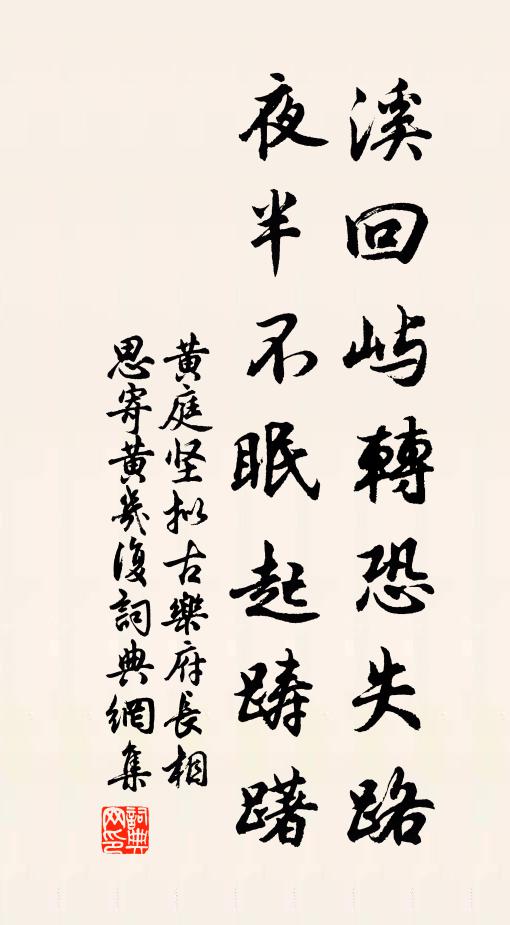 溪回屿轉恐失路
夜半不眠起踌躇
黄庭坚拟古樂府長相
思寄黄幾復詞典網集
詞典網印